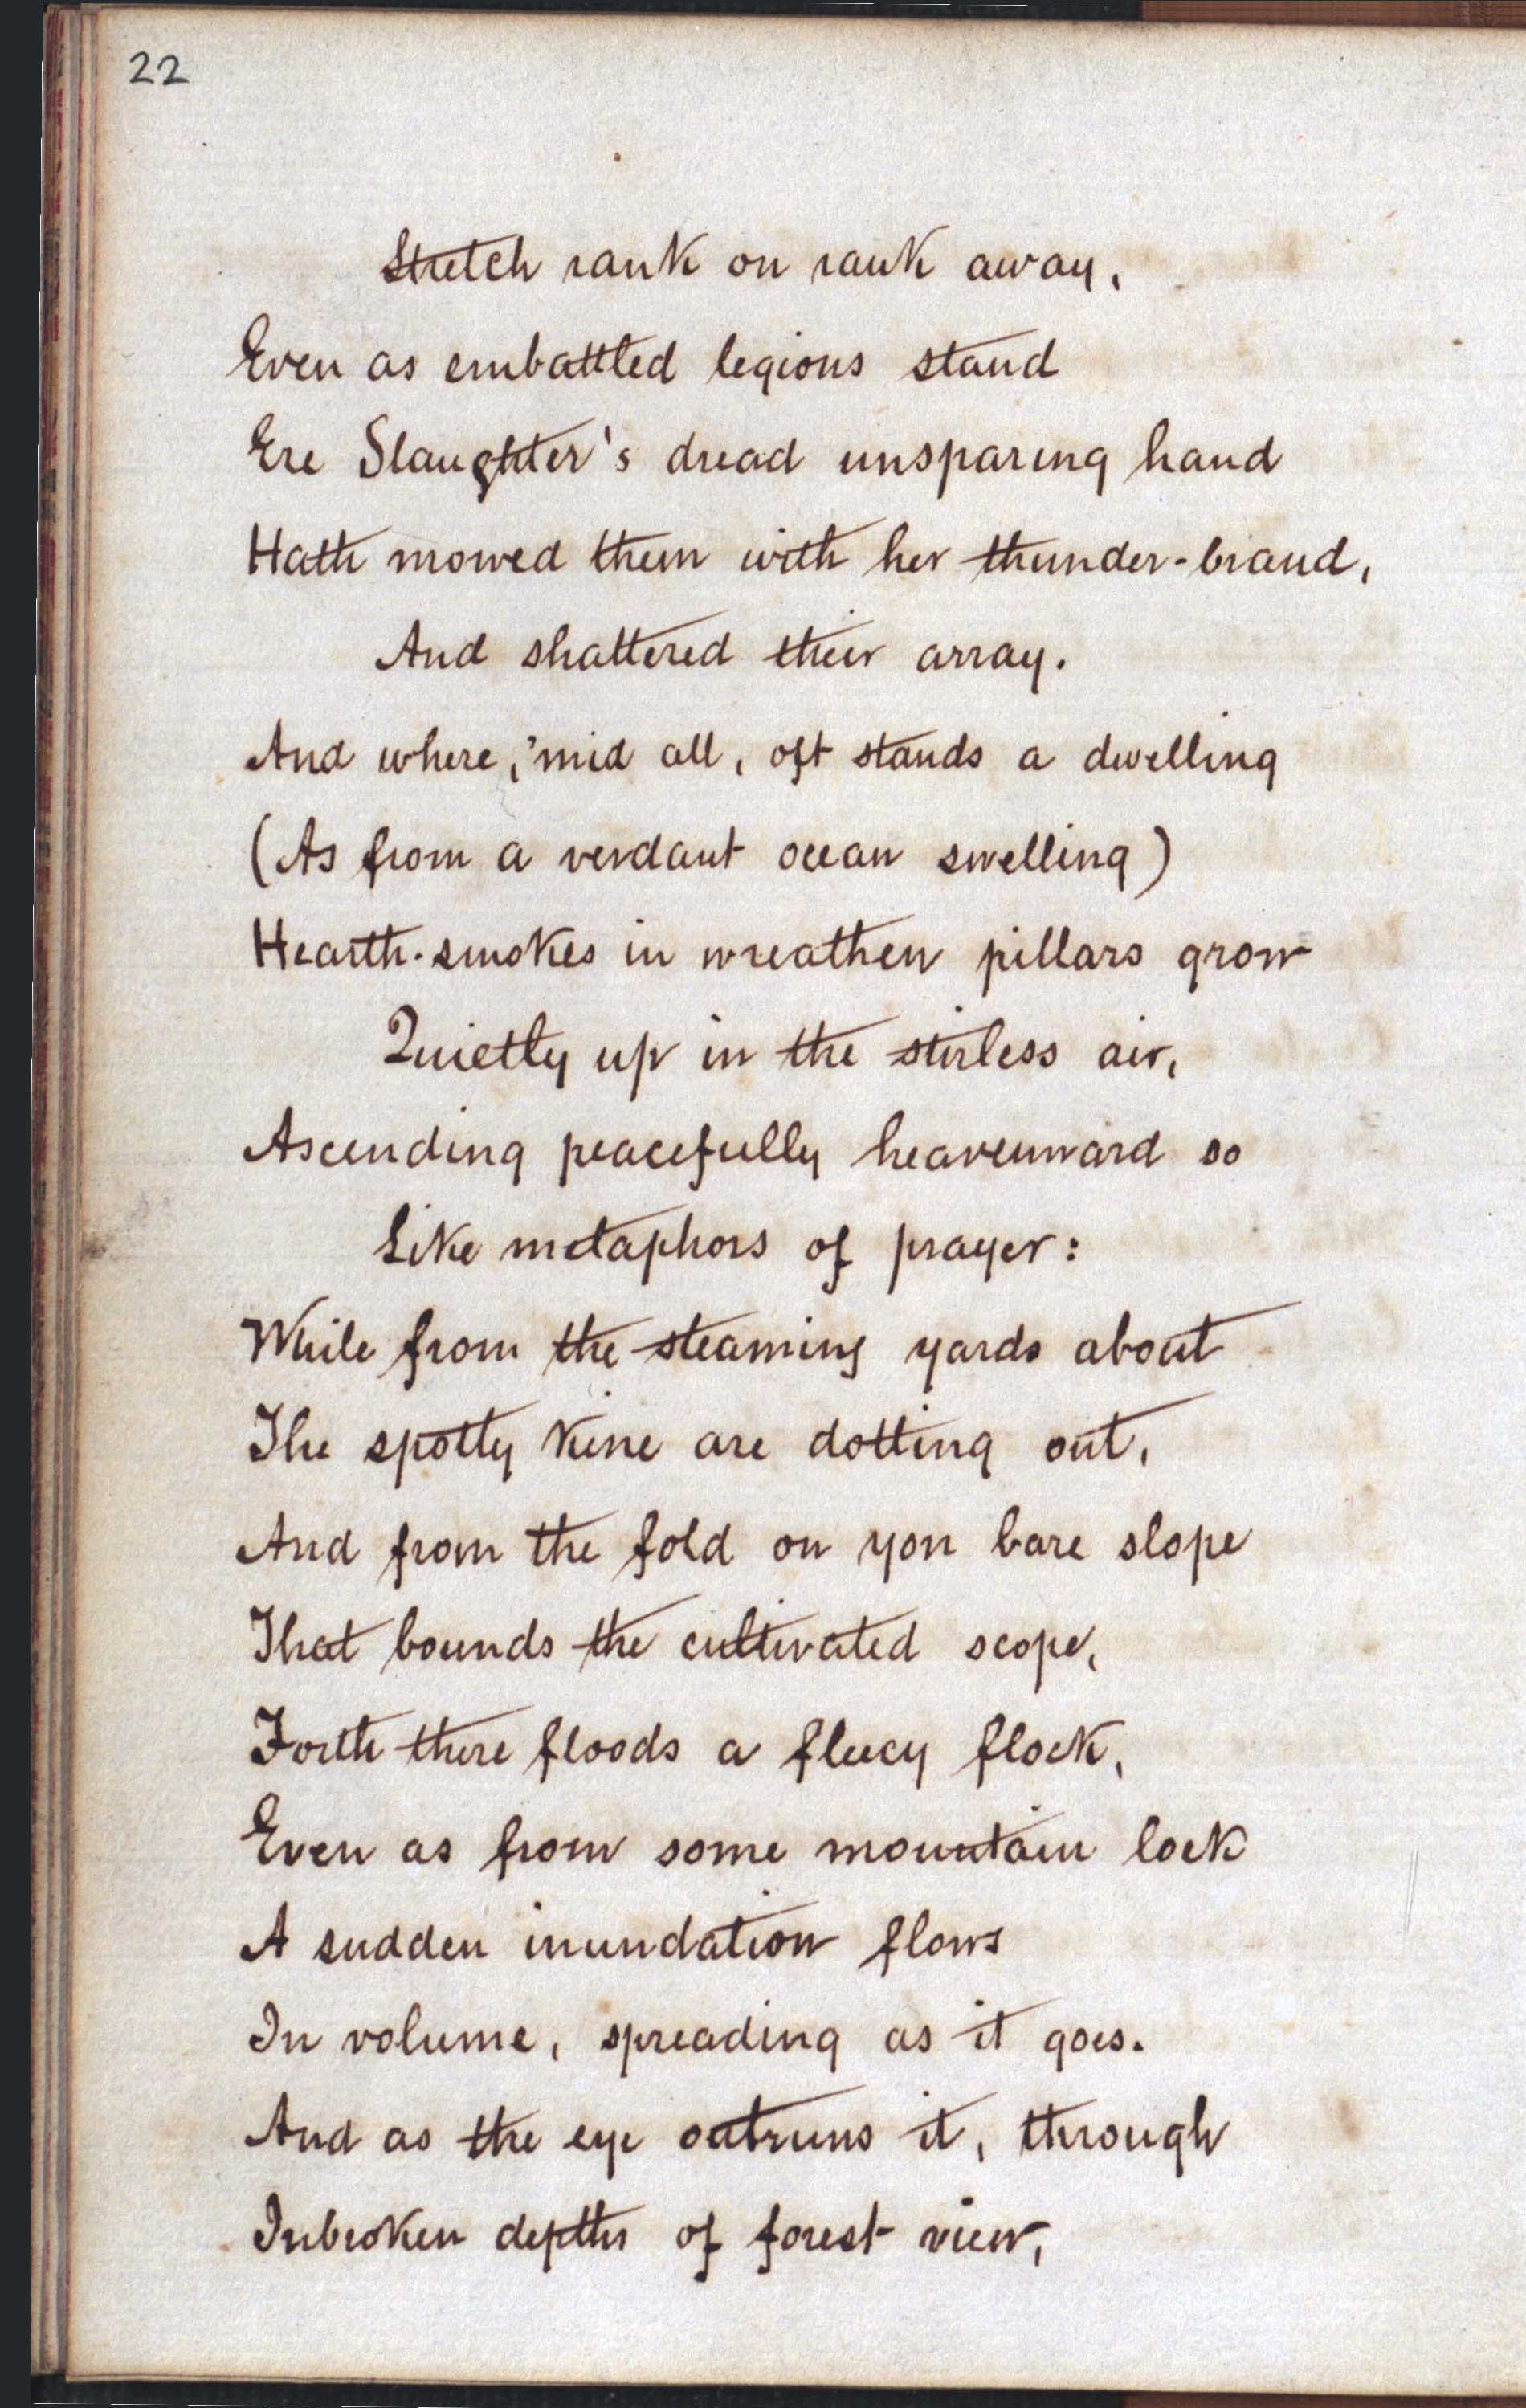 22
Stretch rank on rank away,
Even as embattled legions stand
Ere Slaughter's dread unsparing hand
Hath mowed them with her thunder-brand,
And shattered their array.
And where, 'mid all, oft stands a dwelling
(As from a verdant ocean swelling)
Hearth-smokes in wreathen pillars grow
Quietly up in the stirless air,
Ascending peacefully heavenward so
Like metaphors of prayer:
While from the steaming yards about
The spotty kine are dotting out,
And from the fold on yon bare slope
That bounds the cultivated scope,
Forth there floods a fleecy flock,
Even as from some mountain lock
A sudden inundation flows
In volume, spreading as it goes.
And as the eye outruns it, through
Inbroken depths of forest view,